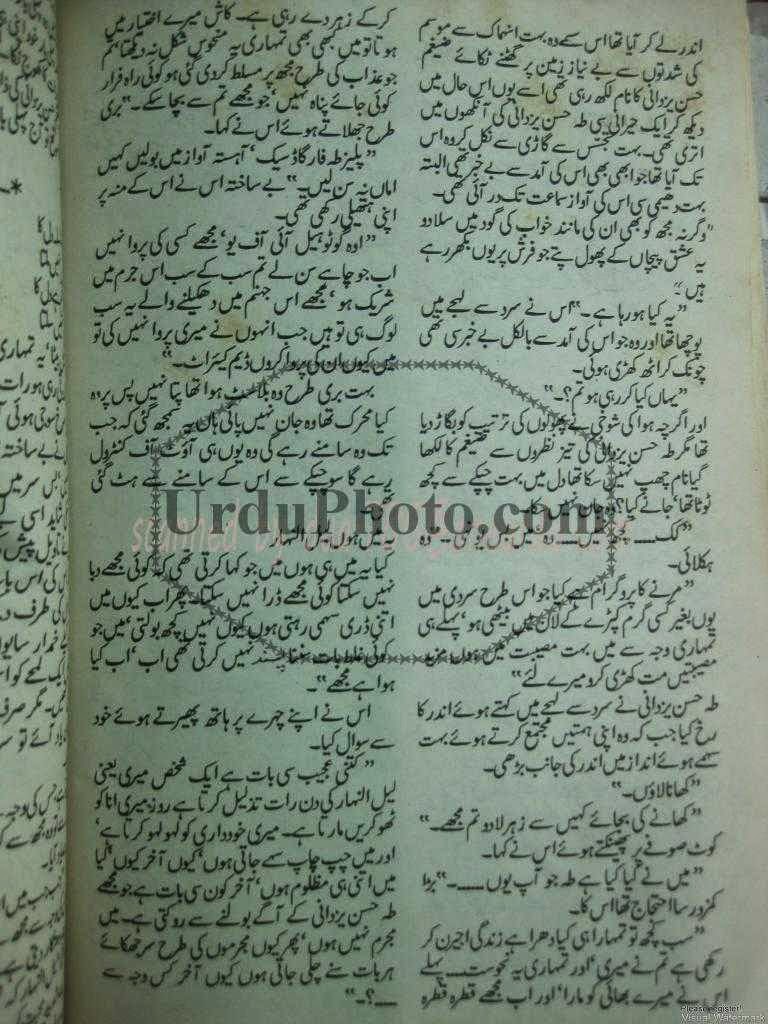 اندر لے کر آیا تھا اس کے وہ بہت انہماک سے موسم
کی شدتوں سے بے نیاز زمین پر گھٹنے ٹکائے ضیغم
حسن یزدانی کا نام لکھ رہی تھی اسے یوں اس حال میں
دیکھ کر ایک حیرانی سی طہ حسن یزدانی کی آنکھوں میں
اتری تھی۔ بہت تجسس سے گاڑی سے نکل کر وہ اس
تک آیا تھا جو ابھی بھی اس کی آمد سے بے خبر تھی البتہ
بہت دھیمی سی اس کی آواز سماعت تک در آئی تھی۔
"وگرنہ مجھ کو بھی ان کی مانند خواب کی گود میں سلا دو
یہ عشق پیچاں کے پھول پتے جو فرش پر یوں بکھر رہے
ہیں"
"یہ کیا ہو رہا ہے۔" اس نے سرد سے لہجے میں
پوچھا تھا اور وہ جو اس کی آمد سے بالکل بے خبر سی تھی
چونک کر اٹھ کھڑی ہوئی۔
"یہاں کیا کر رہی ہو تم؟۔"
اور اگرچہ ہوا کی شوخی نے پھولوں کی ترتیب کو بگاڑ دیا
تھا مگر طہ حسن یزدانی کی تیز نظروں سے ضیغم کا لکھا
گیا نام چھپ نہیں سکا تھا دل میں بہت چپکے سے کچھ
ٹوٹا تھا' جانے کیا؟ وہ جان نہیں سکا۔
"کک۔۔۔ میں۔۔۔۔ وہ میں بس یونہی۔" وہ
ہکلائی۔
"مرنے کا پروگرام ہے کیا جو اس طرح سردی میں
یوں بغیر کسی گرم کپڑے کے لان میں بیٹھی ہو' پہلے ہی
تمہاری وجہ سے میں بہت مصیبت میں ہوں مزید
مصیبتیں مت کھڑی کرو میرے لئے"
طہ حسن یزدانی نے سرد سے لہجے میں کہتے ہوئے اندر کا
رخ کیا جب کہ وہ اپنی ہمتیں مجتمع کرتے ہوئے بہت
سہمے ہوئے انداز میں اندر کی جانب بڑھی۔
"کھانا لاؤں۔"
"کھانے کی بجائے کہیں سے زہر لا دو تم مجھے۔"
کوٹ صوفے پر پھینکتے ہوئے اس نے کہا۔
"میں نے کیا کیا ہے طہ جو آپ یوں۔۔۔۔" بڑا
کمزور سا احتجاج تھا اس کا۔
"سب کچھ تو تمہارا ہی کیا دھرا ہے زندگی اجیرن کر
رکھی ہے تم نے میری' اور تمہاری یہ نحوست۔۔۔ پہلے
اس نے میرے بھائی کو مارا' اور اب مجھے قطرہ قطرہ
کر کے زہر دے رہی ہے۔ کاش میرے اختیار میں
ہوتا تو میں کبھی بھی تمہاری یہ منحوس شکل نہ دیکھتا' تم
جو عذاب کی طرح مجھ پر مسلط کر دی گئی ہو کوئی راہ فرار
کوئی جائے پناہ نہیں' جو مجھے تم سے بچا سکے۔" بری
طرح جھلاتے ہوئے اس نے کہا۔
"پلیز طہ فار گاڈ سیک' آہستہ آواز میں بولیں کہیں
اماں نہ سن لیں۔" بے ساختہ اس نے اس کے منہ پر
اپنی ہتھیلی رکھی تھی۔
"اوہ گو ٹو ہیل آئی آف یو' مجھے کسی کی پروا نہیں
اب جو چاہے سن لے تم سب کے سب اس جرم میں
شریک ہو' مجھے اس جہنم میں دھکیلنے والے یہ سب
لوگ ہی تو ہیں جب انہوں نے میری پروا نہیں کی تو
میں کیوں ان کی پروا کروں ڈیم کیئراٹ۔"
بہت بری طرح وہ بلاسٹ ہوا تھا پتا نہیں پس پردہ
کیا محرک تھا وہ جان نہیں پائی ہاں یہ سمجھ گئی کہ جب
تک وہ سامنے رہے گی وہ یوں ہی آؤٹ آف کنٹرول
رہے گا سو چپکے سے اس کے سامنے سے ہٹ گئی
تھی۔
میں ہوں لیل النہار
کیا یہ میں ہی ہوں میں جو کہا کرتی تھی کہ کوئی مجھے دبا
نہیں سکتا کوئی مجھے ڈرا نہیں سکتا۔ پھر اب کیوں میں
اتنی ڈری سہمی رہتی ہوں کیوں نہیں کچھ بولتی' میں جو
کوئی غلط بات سننا پسند نہیں کرتی تھی اب' اب کیا
ہوا ہے مجھے"۔
اس نے اپنے چہرے پر ہاتھ پھیرتے ہوئے خود
سے سوال کیا۔
"کتنی عجیب سی بات ہے ایک شخص میری یعنی
لیل النہار کی دن رات تذلیل کرتا ہے روز میری انا کو
ٹھوکریں مارتا ہے۔ میری خودداری کو لہو لہو کرتا ہے'
اور میں چپ چاپ سہے جاتی ہوں' کیوں آخر کیوں' کیا
میں اتنی ہی مظلوم ہوں' آخر کون سی بات ہے جو مجھے
طہ حسن یزدانی کے آگے بولنے سے روکتی ہے۔ میں
مجرم نہیں ہوں' پھر کیوں مجرموں کی طرح سر جھکائے
ہر بات سنے چلی جاتی ہوں کیوں آخر کس وجہ سے
۔۔۔؟۔"
UrduPhoto.com
Please register!
Visual Watermark